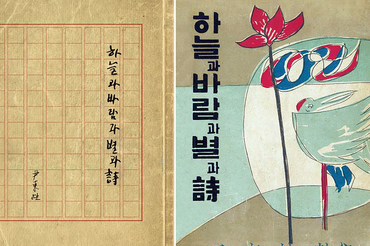 하늘과 바람과 별과 詩
尹東柱
하늘과 바람과 별과 詩